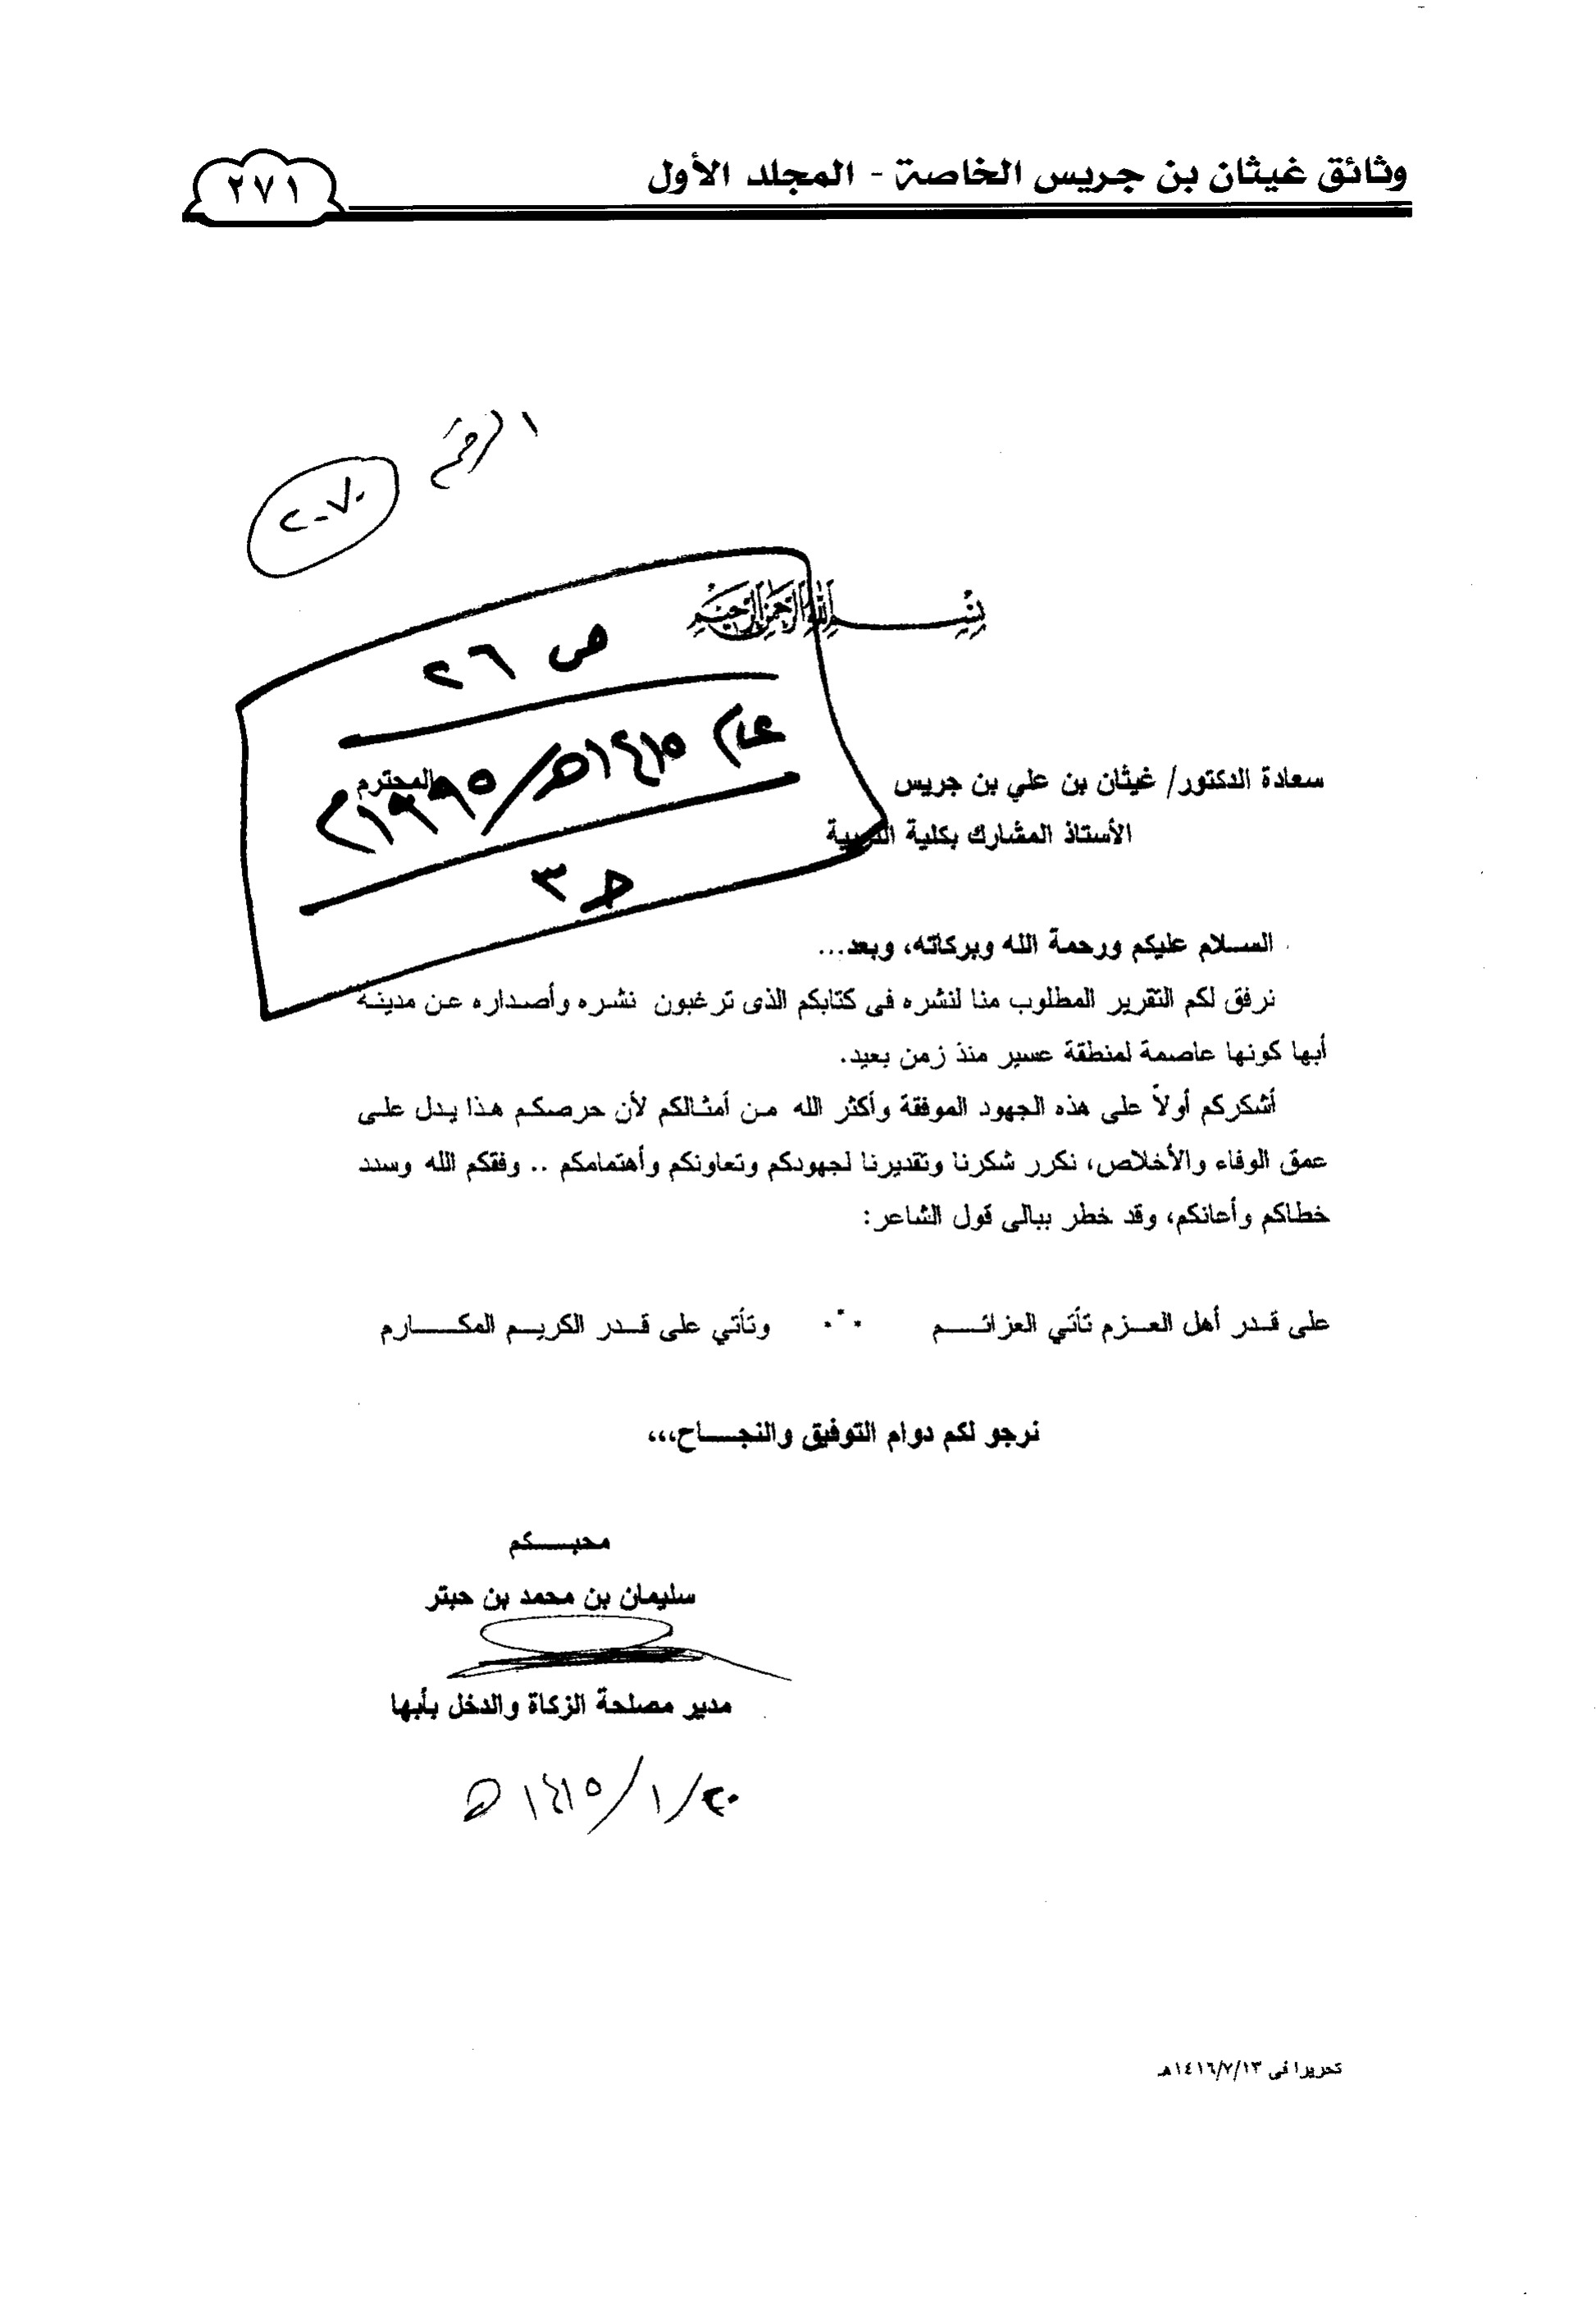 وثائق غيثان بن جريس الخاصة - المجلد الأول
٢٧١
الرقم
٢٠٧٠
بسم الله الرحمن الرحيم
ص ٢٦
عام ١٤١٥هـ/١٩٩٥م
سعادة الدكتور/ غيثان بن علي بن جريس المحترم
الأستاذ المشارك بكلية التربية
السلام عليكم ورحمة الله وبركاته، وبعد...
نرفق لكم التقرير المطلوب منا لنشره فى كتابكم الذى ترغبون نشره وأصداره عن مدينة
أبها كونها عاصمة لمنطقة عسير منذ زمن بعيد.
أشكركم أولاً على هذه الجهود الموفقة وأكثر الله من أمثالكم لأن حرصكم هذا يدل على
عمق الوفاء والأخلاص، نكرر شكرنا وتقديرنا لجهودكم وتعاونكم وأهتمامكم .. وفقكم الله وسدد
خطاكم وأعانكم، وقد خطر ببالى قول الشاعر:
على قدر أهل العزم تأتي العزائم ∴ وتأتي على قدر الكريم المكارم
نرجو لكم دوام التوفيق والنجاح،،،
محبكم
سليمان بن محمد بن حبتر
مدير مصلحة الزكاة والدخل بأبها
٢٠/١/١٤١٥هـ
تحريرا فى ١٤١٦/٧/١٣هـ